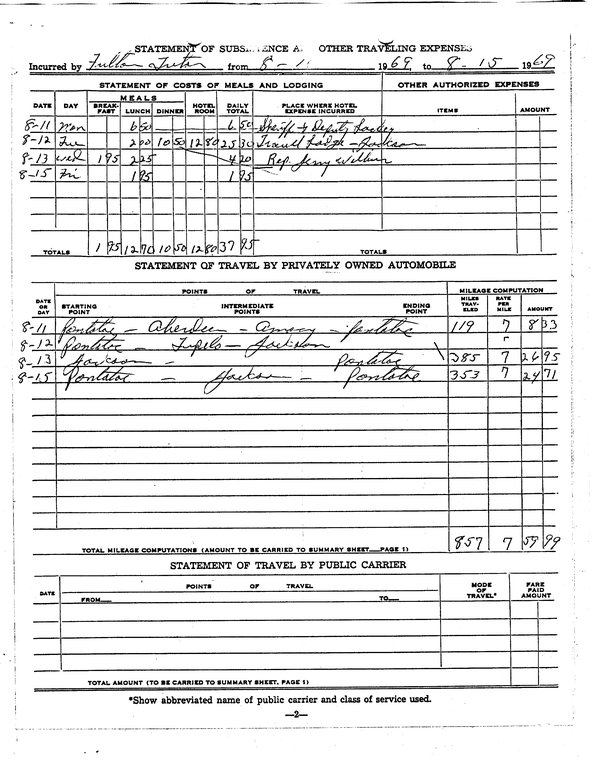 STATEMENT OF SUBS... ENCE A. OTHER TRAVELING EXPENSES
Incurred by Fulton Tutor from 8-1 1969 to 8-15 1969
STATEMENT OF COSTS OF MEALS AND LODGING OTHER AUTHORIZED EXPENSES
DATE DAY MEALS BREAK-FAST LUNCH DINNER HOTEL ROOM DAILY TOTAL PLACE WHERE HOTEL EXPENSE INCURRED ITEMS AMOUNT
8-11 Mon 6 50 6 50 Sheriff & Deputy
8-12 Tue 2 00 10 50 12 80 25 30 Travel Lodge - Jackson
8-13 Wed 1 95 2 25 4 20 Rep. Jerry Wilburn
8-15 Fri 1 95 1 95
TOTALS 1 95 12 70 10 50 12 80 37 95 TOTALS
STATEMENT OF TRAVEL BY PRIVATELY OWNED AUTOMOBILE
DATE OR DAY POINTS OF TRAVEL STARTING POINT INTERMEDIATE POINTS ENDING POINT MILEAGE COMPUTATION MILES TRAV-ELED RATE PER MILE AMOUNT
8-11 Pontotoc - Aberdeen - Amory - Pontotoc 119 7 8 33
8-12 Pontotoc - Tupelo - Jackson
8-13 Jackson - Pontotoc 385 7 26 95
8-15 Pontotoc - Jackson - Pontotoc 353 7 24 71
TOTAL MILEAGE COMPUTATIONS (AMOUNT TO BE CARRIED TO SUMMARY SHEET—PAGE 1) 857 7 59 99
STATEMENT OF TRAVEL BY PUBLIC CARRIER
DATE POINTS OF TRAVEL FROM TO MODE OF TRAVEL* FARE PAID AMOUNT
TOTAL AMOUNT (TO BE CARRIED TO SUMMARY SHEET, PAGE 1)
*Show abbreviated name of public carrier and class of service used.
—2—